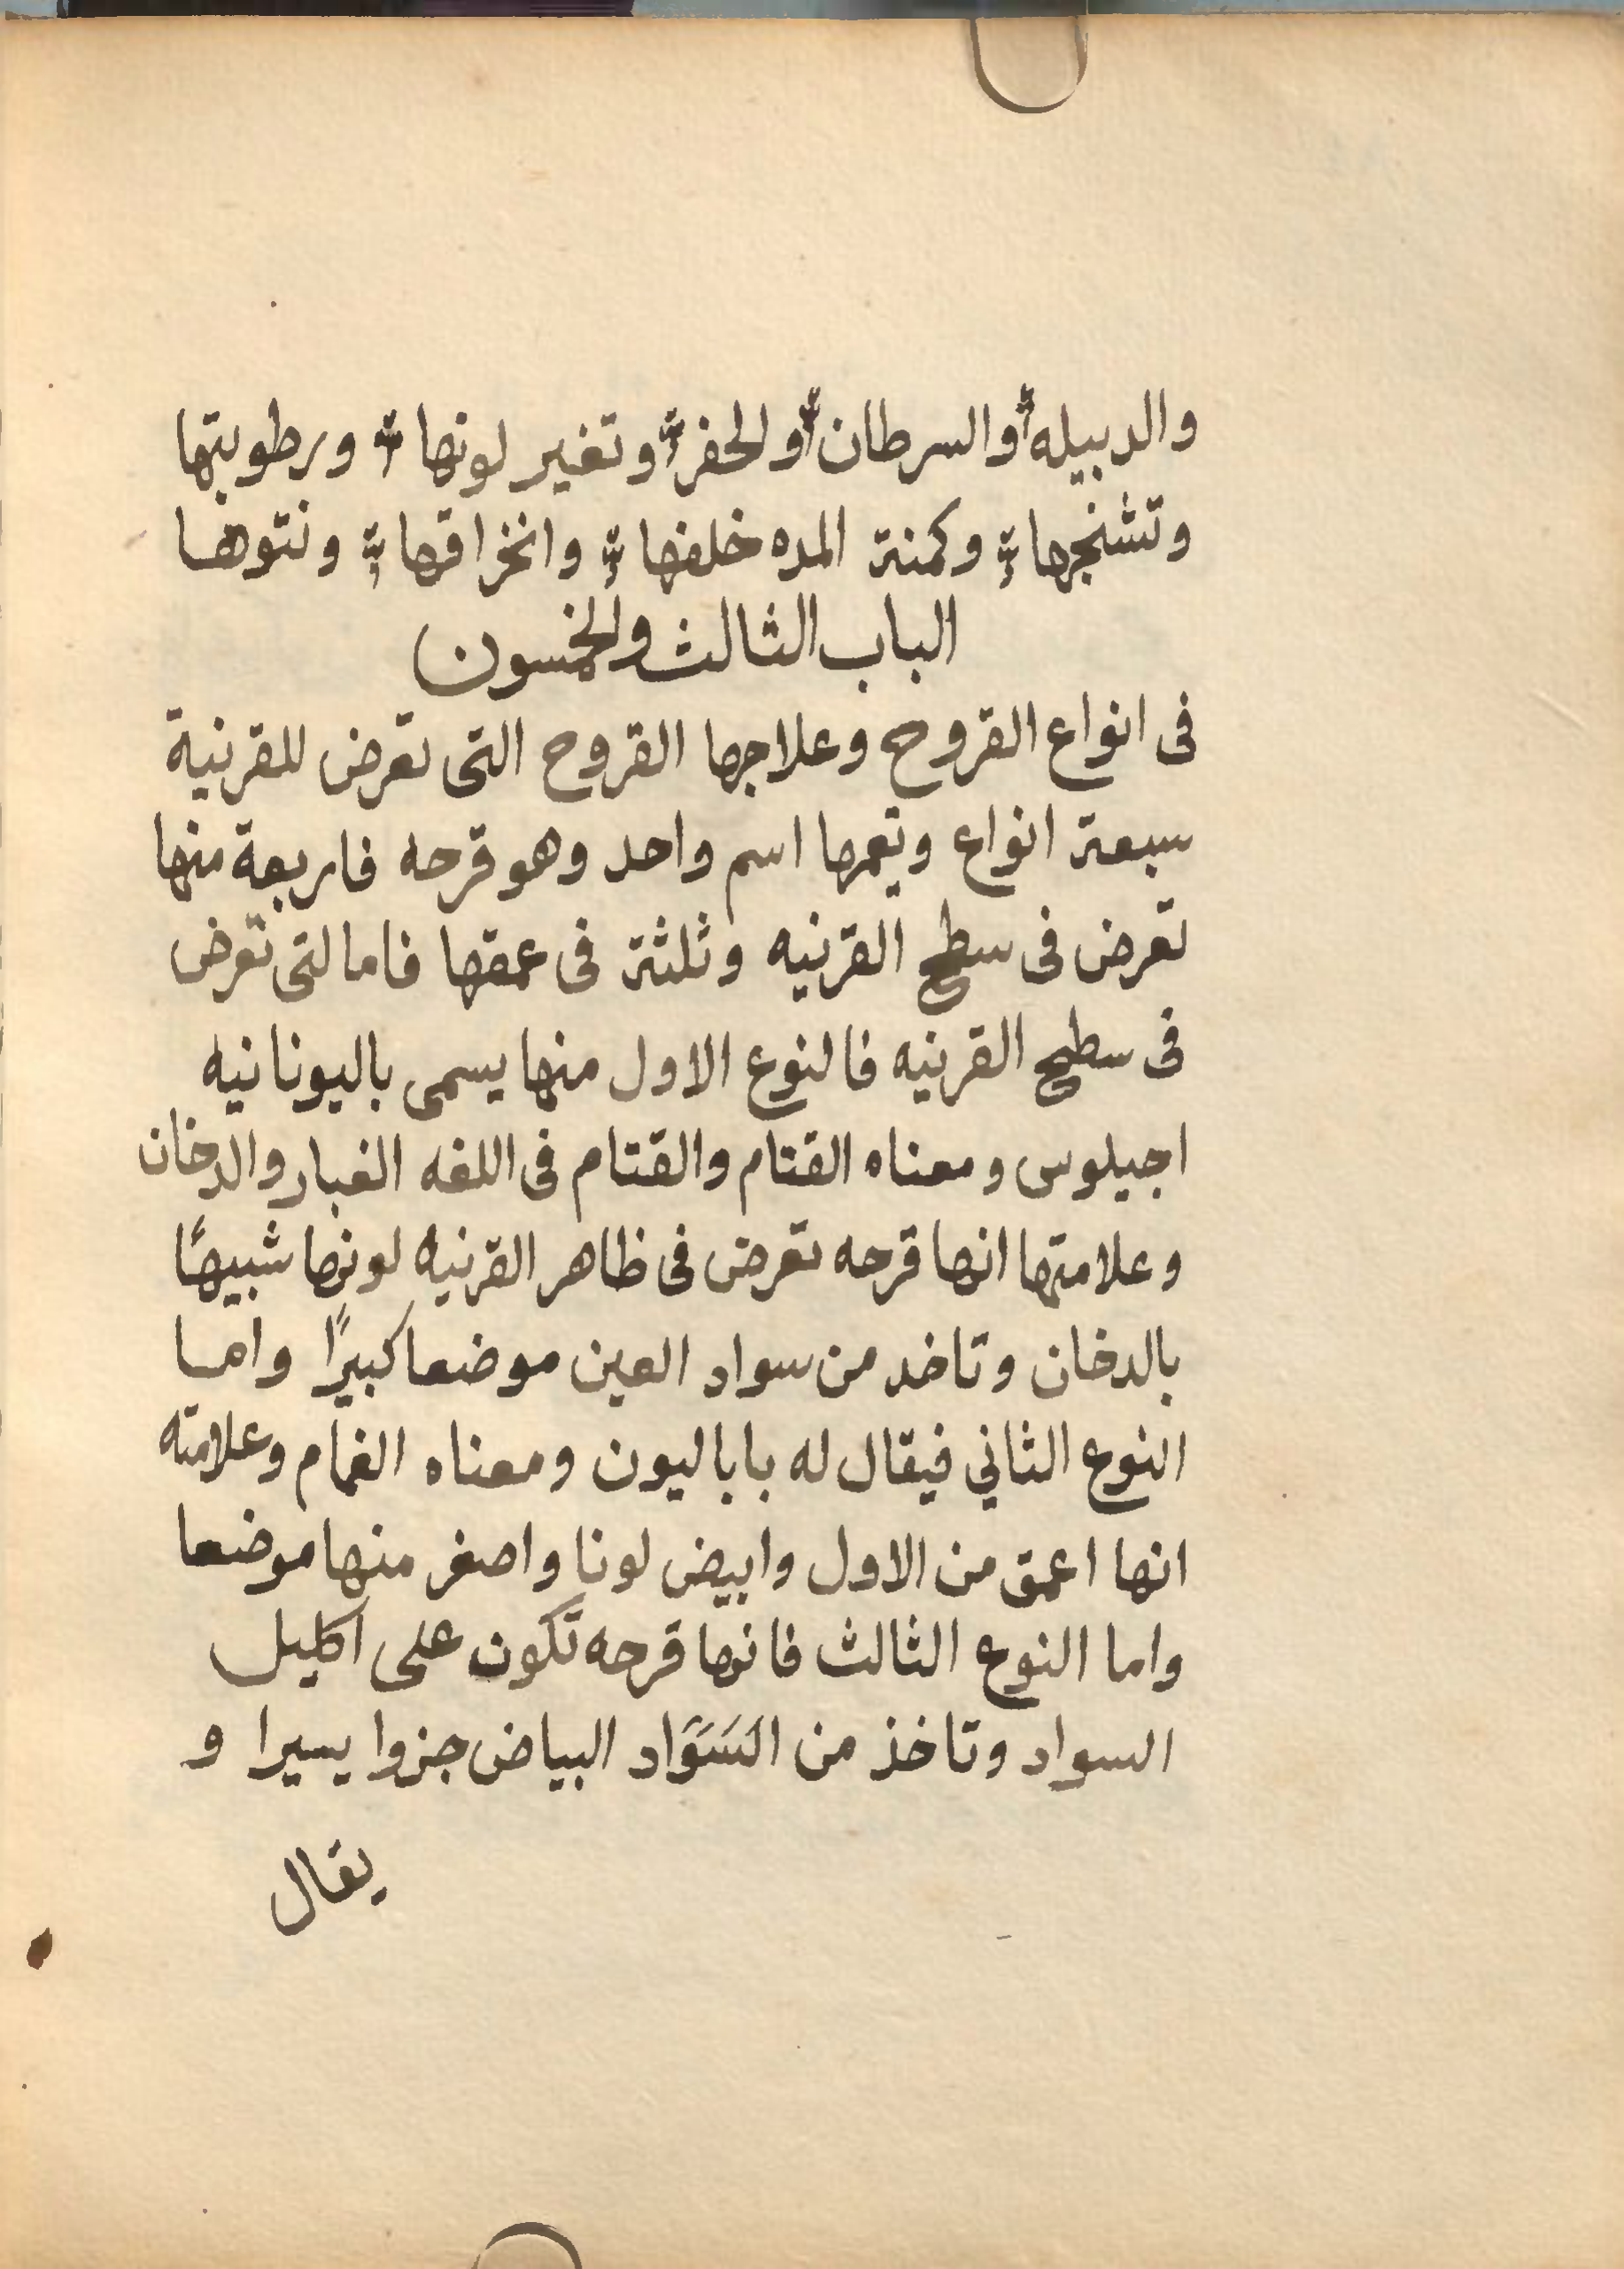 والدبيله والسرطان والحفر وتغير لونها ورطوبتها
وتشنجها وكمنة المده خلفها وانخراقها ونتوها
الباب الثالث والخمسون
فى انواع القروح وعلاجها القروح التى تعرض للقرنية
سبعة انواع ويعمها اسم واحد وهو قرحه فاربعة منها
تعرض فى سطح القرنيه وثلثة فى عمقها فاما لتى تعرض
فى سطح القرنيه فالنوع الاول منها يسمى باليونانيه
اجيلوس ومعناه القتام والقتام فى اللغه الغبار والدخان
وعلامتها انها قرحه تعرض فى ظاهر القرنيه لونها شبيهًا
بالدخان وتاخد من سواد العين موضعا كبيرًا واما
النوع الثاني فيقال له باباليون ومعناه الغمام وعلامته
انها اعمق من الاول وابيض لونا واصغر منها موضعا
واما النوع الثالث فانها قرحه تكون على اكليل
السواد وتاخذ من السَوَاد البياض جزوا يسيرا و
يقال